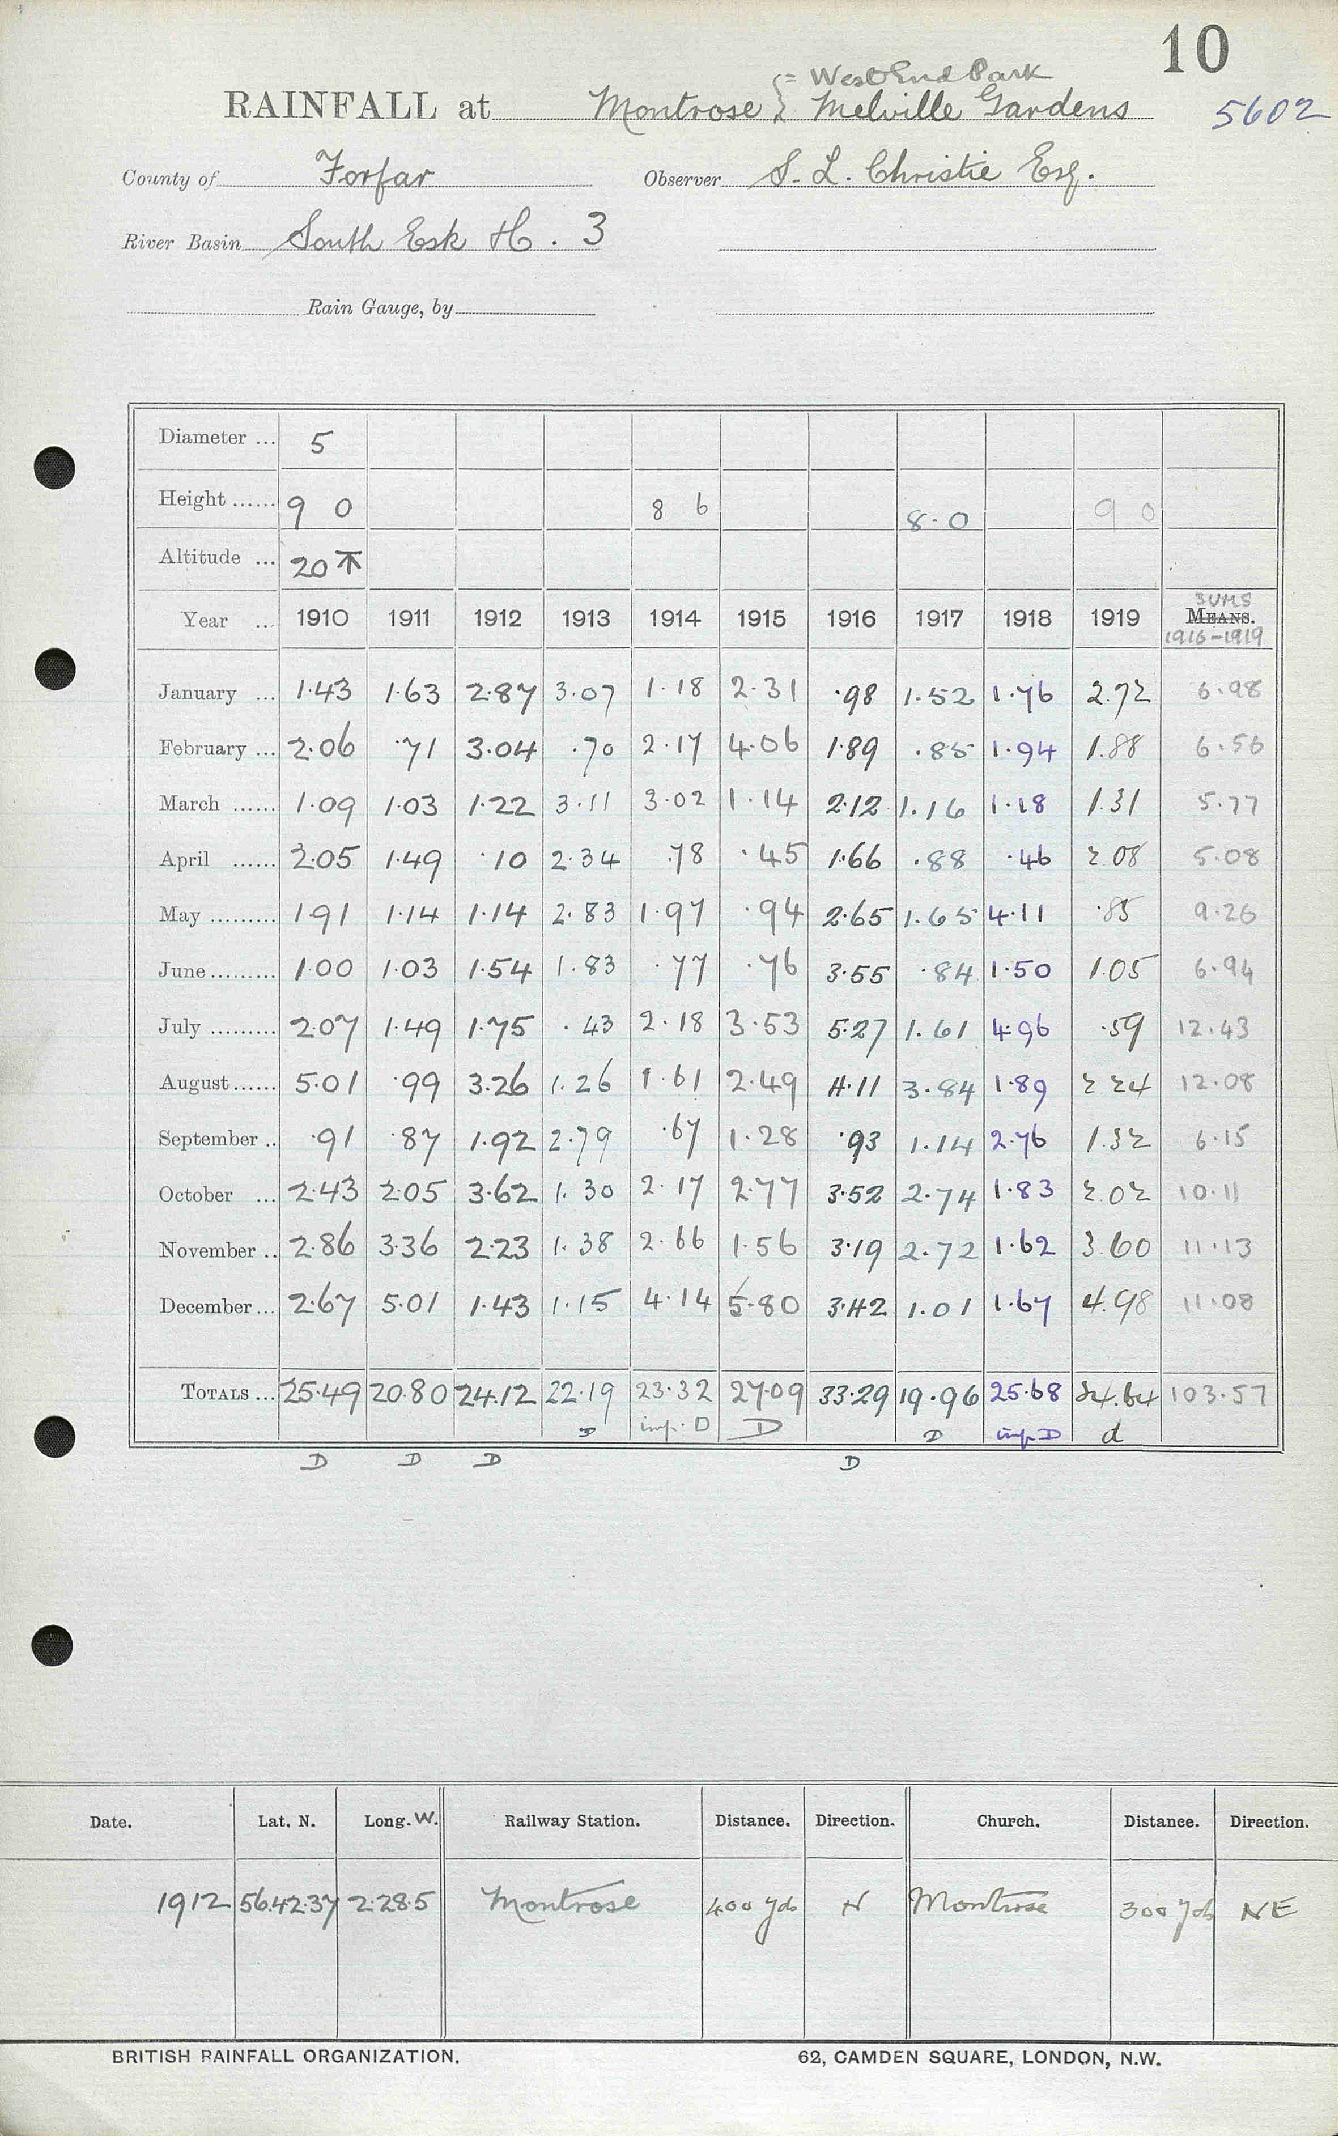 10
= West End Park
RAINFALL at Montrose } Melville Gardens 5602
County of Forfar Observer S. L. Christie Esq.
River Basin South Esk H. 3
Rain Gauge, by
Diameter ... 5
Height ...... 9 0 8 6 8.0 9 0
Altitude ... 20 ⊼
SUMS
Year ... 1910 1911 1912 1913 1914 1915 1916 1917 1918 1919 MEANS.
1916-1919
January ... 1.43 1.63 2.87 3.07 1.18 2.31 .98 1.52 1.76 2.72 6.98
February ... 2.06 .71 3.04 .70 2.17 4.06 1.89 .85 1.94 1.88 6.56
March ...... 1.09 1.03 1.22 3.11 3.02 1.14 2.12 1.16 1.18 1.31 5.77
April ...... 2.05 1.49 .10 2.34 .78 .45 1.66 .88 .46 2.08 5.08
May ......... 1.91 1.14 1.14 2.83 1.97 .94 2.65 1.65 4.11 .85 9.26
June ......... 1.00 1.03 1.54 1.83 .77 .76 3.55 .84 1.50 1.05 6.94
July ......... 2.07 1.49 1.75 .43 2.18 3.53 5.27 1.61 4.96 .59 12.43
August ...... 5.01 .99 3.26 1.26 1.61 2.49 4.11 3.84 1.89 2.24 12.08
September .. .91 .87 1.92 2.79 .67 1.28 .93 1.14 2.76 1.32 6.15
October ... 2.43 2.05 3.62 1.30 2.17 2.77 3.52 2.74 1.83 2.02 10.11
November .. 2.86 3.36 2.23 1.38 2.66 1.56 3.19 2.72 1.62 3.60 11.13
December ... 2.67 5.01 1.43 1.15 4.14 5.80 3.42 1.01 1.67 4.98 11.08
TOTALS ... 25.49 20.80 24.12 22.19 23.32 27.09 33.29 19.96 25.68 24.64 103.57
D imp. D D D imp. D d
D D D D
Date. Lat. N. Long. W. Railway Station. Distance. Direction. Church. Distance. Direction.
1912 56.42.37 2.28.5 Montrose 400 yds N Montrose 300 yds NE
BRITISH RAINFALL ORGANIZATION. 62, CAMDEN SQUARE, LONDON, N.W.